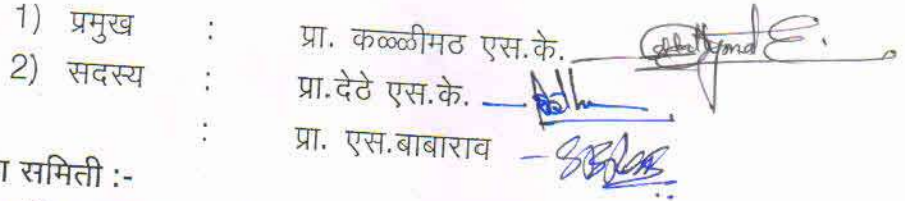 1) प्रमुख : प्रा. कळ्ळीमठ एस.के.
2) सदस्य : प्रा.देठे एस.के.
: प्रा. एस.बाबाराव
समिती :-